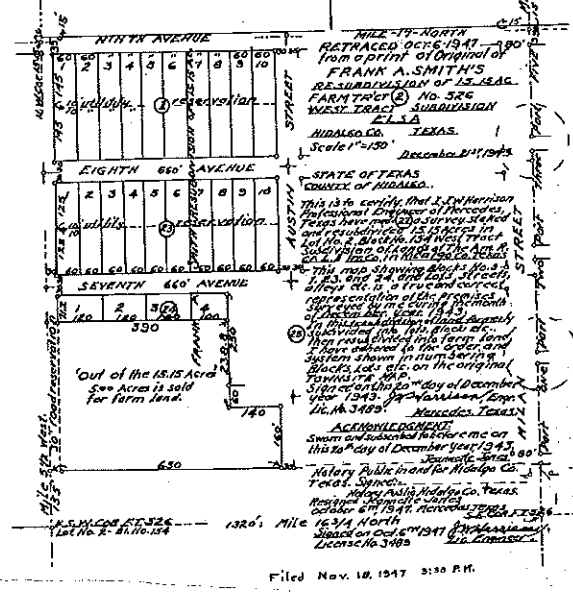 NINTH AVENUE
1 2 3 4 5 6 7 8 9 10
10' utility reservation
STREET
EIGHTH 660' AVENUE
1 2 3 4 5 6 7 8 9 10
utility reservation
AUSTIN
SEVENTH 660' AVENUE
1 2 3 4
120 120 100
390
FRANK
Out of the 15.15 Acre
5.00 Acres is sold
for farm land.
60
140
160'
650
Mile 5½ West.
20' road reservation
K.S.W.COR.F.T.526
Lot No. 2- Bl. No. 154
1320'; Mile 16 3/4 North
MILE -17- NORTH
RETRACED OCT. 6-1947
from a print of Original of
FRANK A. SMITH'S
RE-SUBDIVISION OF 15.15 AC
FARM TRACT 2 No. 526
WEST TRACT SUBDIVISION
ELSA
HIDALGO CO. TEXAS.
Scale 1"=150'
December 21st, 1943
STATE OF TEXAS
COUNTY OF HIDALGO.
This is to certify, that I, J.W. Harrison
Professional Engineer of Mercedes,
Texas have made a survey, staked
and resubdivided 15.15 Acres in
Lot No. 2, Block No. 154 West Tract
Subdivision of Lands of The Am. R.
This map showing Blocks No.s
Lots, Streets,
alleys etc. is a true and correct
representation of the premises
surveyed by me during the month
of December, year 1943.
In this resubdivision of land formerly
subdivided into lots, Block etc.,
then resubdivided into farm land
I have adhered to the order, and
system shown in numbering
Blocks, Lots etc. on the original
TOWNSITE MAP.
Signed on this 20th day of December
year 1943. J.W. Harrison, Engr.
Lic. No. 3489. Mercedes, Texas.
ACKNOWLEDGMENT:
Sworn and subscribed to before me on
this 20th day of December year 1943.
Jeannette Jones
Notary Public in and for Hidalgo Co.
Texas. Signed:
Notary Public Hidalgo Co. Texas.
Resigned Jeannette Jones
October 6th 1947. Mercedes, Texas
Signed on Oct. 6th 1947 J.W. Harrison
License No. 3489 Lic. Engineer.
MILAN STREET
Filed Nov. 18, 1947 3:30 P.M.